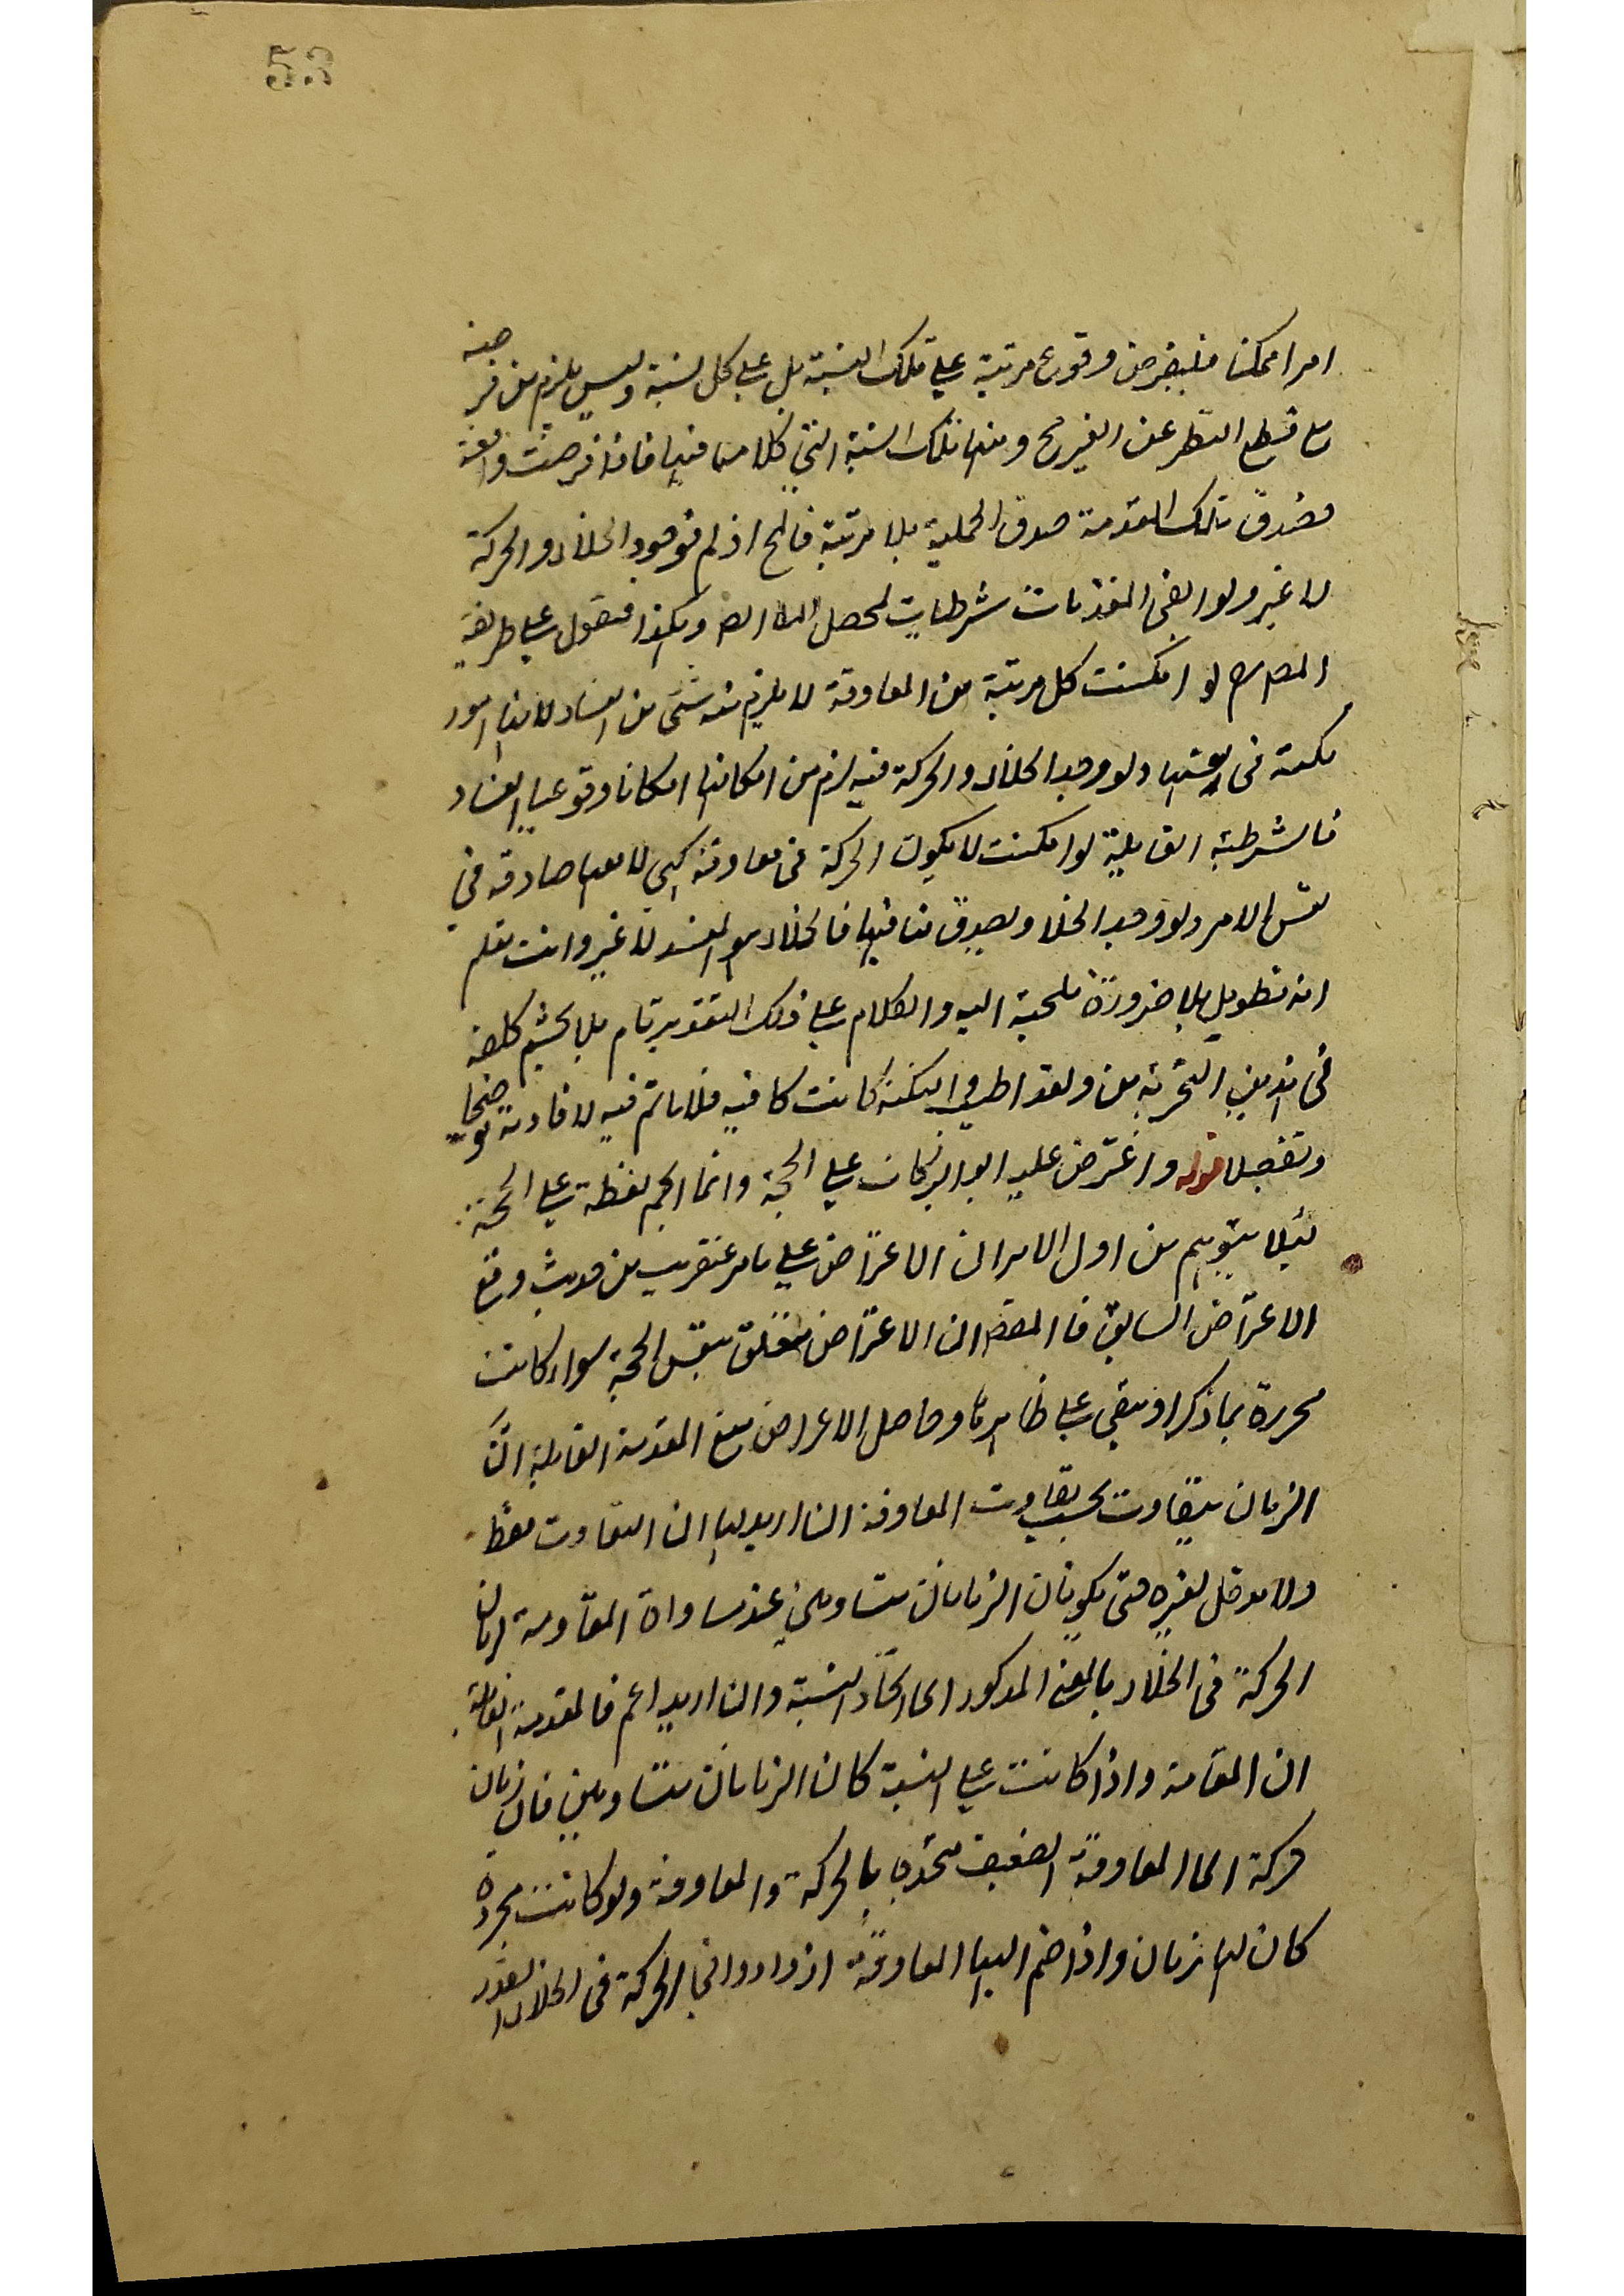 53
امرا ممكنا فليفرض وقوع مرتبة على تلك النسبة بل على كل نسبة وليس يلزم من فرضه
مع قطع النظر عن الغير مح ومنها تلك النسبة التي كلامنا فيها فاذا فرضت واقعة
فصدق تلك المقدمة صدق الحملية بلا مرتبة فالمح اذ لم فوجود الخلاء والحركة
لا غير ولو ابقى المقدمات شرطيات لحصل المط وهكذا فنقول على طريقة
المص لو امكنت كل مرتبة من المعاوقة لا يلزم منه شئ من الفساد لانها امور
ممكنة في انفسها ولو وجد الخلاء والحركة فيه لزم من امكانها امكانا وقوعيا الفساد
فالشرطية القايلة لو امكنت لا يكون الحركة في معاوقة كهى لا معها صادقة في
نفس الامر ولو وجد الخلاء وليصدق منافيها فالخلاء هو المفسد لا غير وانت تعلم
انه تطويل بلا ضرورة ملجئة اليه والكلام على ذلك التقدير تام بلا تجشم كلفة
في التجربة من ولقد اطنب لكنه كانت كافية فلا ماتم فيه لافادته توضيحا
وتفصيلا قوله واعترض عليه ابو البركات على الحجة وانما اقحم لفظة على الحجة
لئلا يتوهم من اول الامر ان الاعتراض على ما مر عنقريب من حديث وقع
الاعتراض السابق فالمقص ان الاعتراض متعلق بنفس الحجة سواء كانت
محررة بما ذكر او بقى على ظاهرها وحاصل الاعراض منع المقدمة القايلة ان
الزمان يتفاوت بحسب تفاوت المعاوقة ان اريد بها ان التفاوت فقط
ولا مدخل لغيره حتى يكونان الزمانان متساويين عند مساواة المقاومة لزمان
الحركة في الخلاء بالمعنى المذكور اى اتحاد النسبة وان اريد اعم فالمقدمة القايلة
ان المقامة واذا كانت على النسبة كان الزمانان متساويين فان زمان
حركة الى المعاوقة الضعيف بالحركة والمعاوقة ولو كانت مجردة
كان لها زمان واذا ضم اليها المعاوقة ازداد واقى الحركة في الخلاء القدر